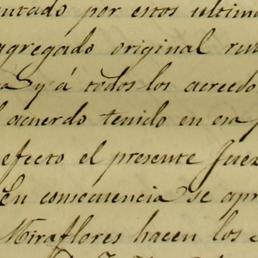 por estos ultim
agregado original
as y á todos los acreedo
l acuerdo tenido en esa
efecto el presente fue
En consecuencia se apr
Miraflores hacen los